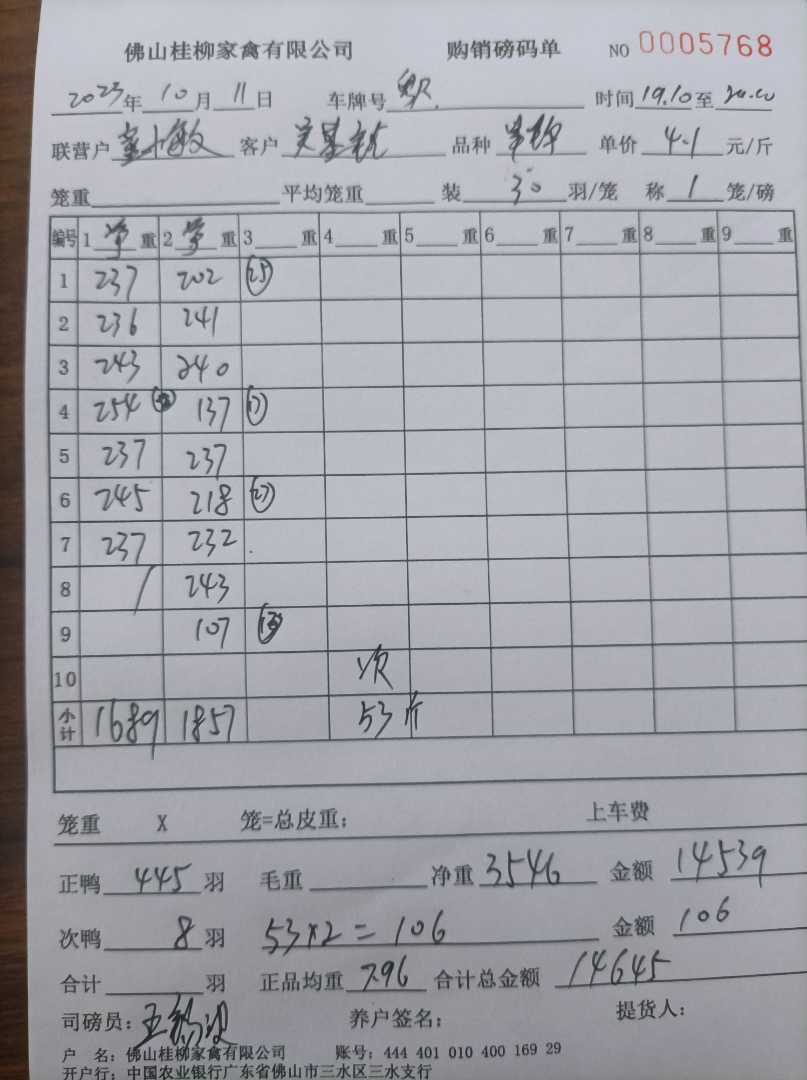 佛山桂柳家禽有限公司 购销磅码单 NO 0005768
2023年10月11日 车牌号 时间19.10至20.00
联营户 客户 品种 单价4.1元/斤
笼重 平均笼重 装30羽/笼 称1笼/磅
编号 1 重 2 重 3 重 4 重 5 重 6 重 7 重 8 重 9 重
1 237 202 25
2 236 241
3 243 240
4 254 137 17
5 237 237
6 245 218 27
7 237 232
8 / 243
9 107
10 次
小计 1689 1857 53斤
笼重 X 笼=总皮重: 上车费
正鸭445羽 毛重 净重3546 金额14539
次鸭8羽 53×2=106 金额106
合计 羽 正品均重7.96 合计总金额14645
司磅员: 养户签名: 提货人:
户 名: 佛山桂柳家禽有限公司 账号: 444 401 010 400 169 29
开户行: 中国农业银行广东省佛山市三水区三水支行